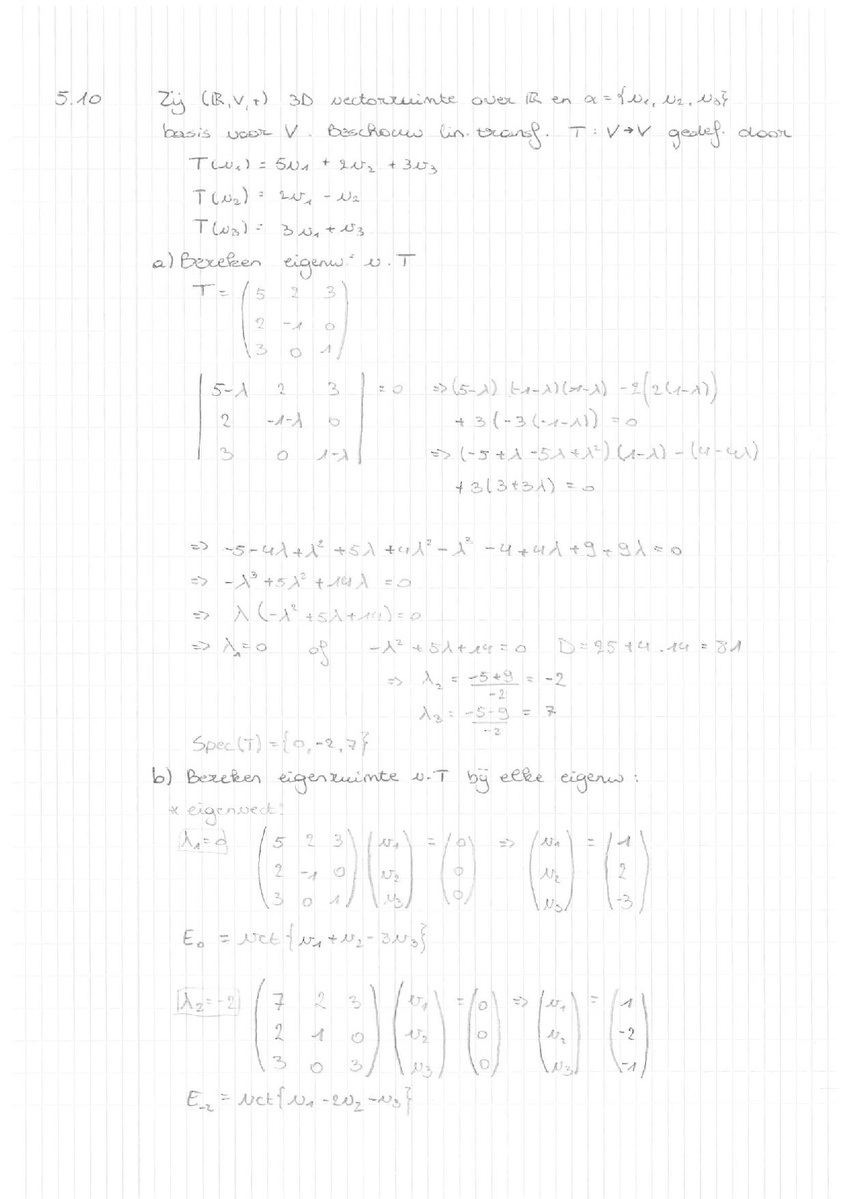 5.10 Zij (ℝ,V,+) 3D vectorruimte over ℝ en α={v₁, v₂, v₃}
basis voor V. Beschouw lin. transf. T: V→V gedef. door
T(v₁) = 5v₁ + 2v₂ + 3v₃
T(v₂) = 2v₁ - v₂
T(v₃) = 3v₁ + v₃
a) Bereken eigenw. v. T
T = (5 2 3
2 -1 0
3 0 1)
|5-λ 2 3| = 0 => (5-λ)(-1-λ)(1-λ) - 2(2(1-λ))
|2 -1-λ 0| + 3(-3(-1-λ)) = 0
|3 0 1-λ| => (-5+λ-5λ+λ²)(1-λ) - (4-4λ)
+3(3+3λ) = 0
=> -5-4λ+λ²+5λ+4λ²-λ³-4+4λ+9+9λ=0
=> -λ³+5λ²+14λ = 0
=> λ(-λ²+5λ+14)=0
=> λ₁=0 of -λ²+5λ+14=0 D=25+4.14=81
=> λ₂ = (-5+9)/-2 = -2
λ₃ = (-5-9)/-2 = 7
Spec(T) = {0,-2,7}
b) Bereken eigenruimte v. T bij elke eigenw:
* eigenvect:
λ₁=0 (5 2 3) (v₁) = (0) => (v₁) = (1)
(2 -1 0) (v₂) (0) (v₂) (2)
(3 0 1) (v₃) (0) (v₃) (-3)
E₀ = vct{v₁+v₂-3v₃}
λ₂=-2 (7 2 3) (v₁) = (0) => (v₁) = (1)
(2 1 0) (v₂) (0) (v₂) (-2)
(3 0 3) (v₃) (0) (v₃) (-1)
E₋₂ = vct{v₁-2v₂-v₃}